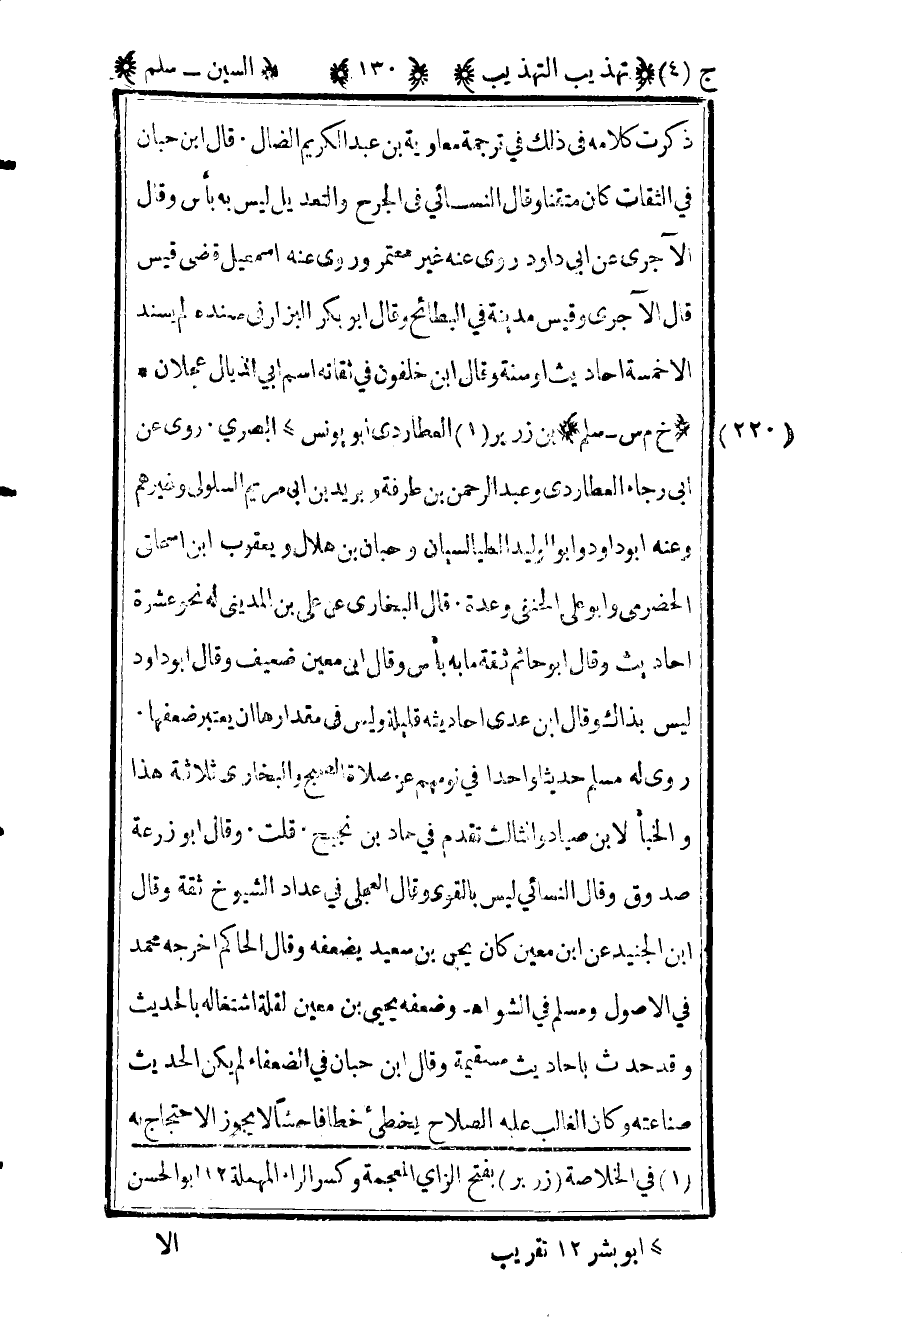 ج (٤) ﴿ تهذيب التهذيب ﴾ ﴿ ١٣٠ ﴾ ﴿ السين ــ سلم ﴾
ذكرت كلامه فى ذلك في ترجمة معاوية بن عبد الكريم الضال ٠ قال ابن حبان
في الثقات كان متقنا وقال النسائي فى الجرح والتعديل ليس به بأس وقال
الآجرى عن ابى داود روى عنه غير معتمر وروى عنه اسمعيل قاضى قيس
قال الآجرى وقيس مدينة في البطائح وقال ابو بكر البزار في مسنده لم يسند
الا خمسة احاديث او ستة وقال ابن خلفون في ثقاته اسم ابي الذيال عجلان *
(٢٢٠) ﴿ خ م س ــ سلم ﴾ بن زرير (١) العطاردى ابو يونس > البصري ٠ روى عن
ابى رجاء العطاردى وعبد الرحمن بن طرفة وبريد بن ابى مريم السلولى وغيرهم
وعنه ابو داود وابو الوليد الطيالسيان وحبان بن هلال ويعقوب ابن اسحاق
الحضرمى وابو على الحنفى وعدة ٠ قال البخارى عن على بن المدينى له نحو عشرة
احاديث وقال ابو حاتم ثقة ما به بأس وقال ابن معين ضعيف وقال ابو داود
ليس بذاك وقال ابن عدى احاديثه قليلة وليس فى مقدارها ان يعتبر ضعفها ٠
روى له مسلم حديثا واحدا في نومهم عن صلاة الصبح والبخارى ثلاثة هذا
والخبأ لابن صياد والثالث تقدم في حماد بن نجيح ٠ قلت ٠ وقال ابو زرعة
صدوق وقال النسائي ليس بالقوى وقال العجلى في عداد الشيوخ ثقة وقال
ابن الجنيد عن ابن معين كان يحيى بن سعيد يضعفه وقال الحاكم اخرجه محمد
في الاصول ومسلم في الشواهد وضعفه يحيى بن معين لقلة اشتغاله بالحديث
وقد حدث باحاديث مستقيمة وقال ابن حبان في الضعفاء لم يكن الحديث
صناعته وكان الغالب عليه الصلاح يخطئ خطأ فاحشا لا يجوز الاحتجاج به
(١) في الخلاصة (زرير) بفتح الزاي المعجمة وكسر الراء المهملة ١٢ ابو الحسن
> ابو بشر ١٢ تقريب
الا